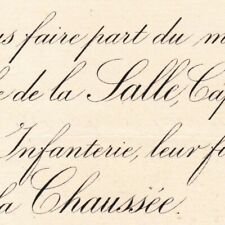 us faire part du m
e de la Salle, Cap
Infanterie, leur f
la Chaussée.